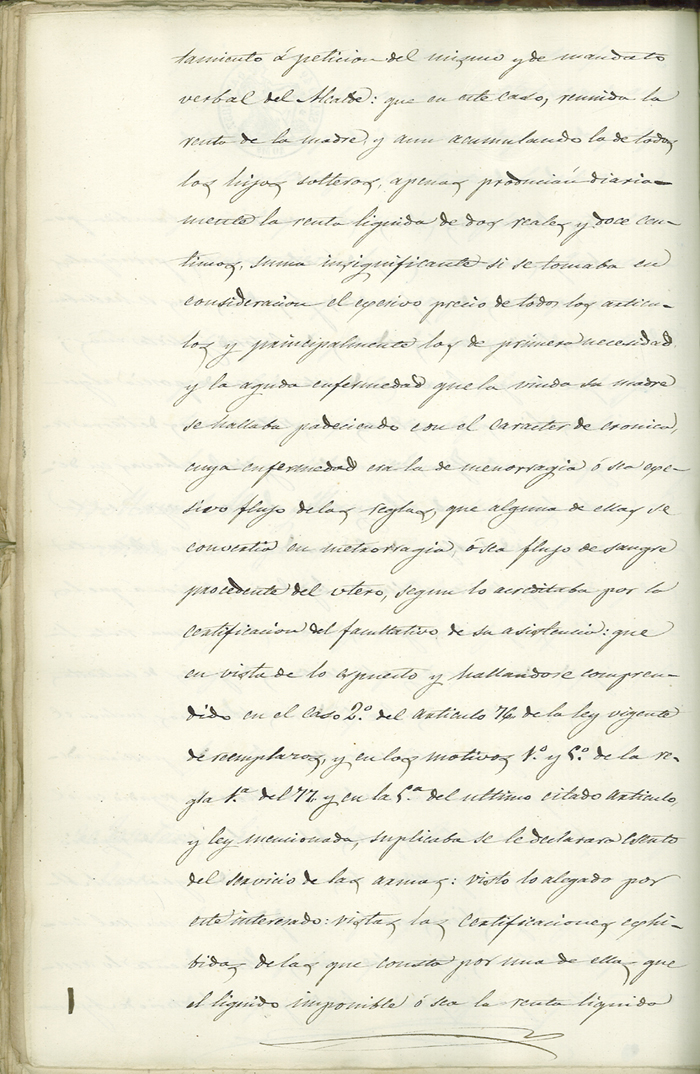 tamiento á peticion del mismo y de mandato
verbal del Alcalde: que en este caso, reunida la
renta de la madre y aun acumulando la de todos
los hijos solteros, apenas producian diaria-
mente la renta liquida de dos reales y doce cen-
timos, suma insignificante si se tomaba en
consideracion el epesivo precio de todos los articu-
los y principalmente los de primera necesidad
y la aguda enfermedad que la viuda su madre
se hallaba padeciendo con el caracter de cronica,
cuya enfermedad era la de menorragia ó sea epe-
sivo flujo de las reglas, que alguna de ellas se
convertia en metrorragia ó sea flujo de sangre
procedente del utero, segun lo acreditaba por la
certificacion del facultativo de su asistencia: que
en vista de lo espuesto y hallandose compren-
dido en el caso 2.º del articulo 76 de la ley vigente
de reemplazos, y en los motivos 1.º y 5.º de la re-
gla 1.ª del 77. y en la 5.ª del ultimo citado articulo,
y ley mencionada, suplicaba se le declarara esento
del servicio de las armas: visto lo alegado por
este interesado: vistas las certificaciones ephi-
bidas de las que consta por una de ellas que
el liquido imponible ó sea la renta liquida